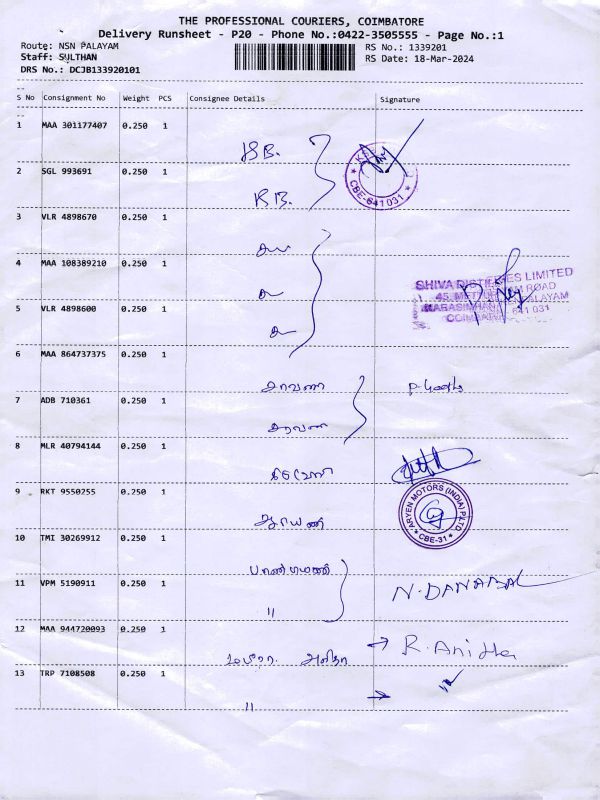 THE PROFESSIONAL COURIERS, COIMBATORE
Delivery Runsheet - P20 - Phone No.:0422-3505555 - Page No.:1
Route: NSN PALAYAM
RS No.: 1339201
Staff: SULTHAN
RS Date: 18-Mar-2024
DRS No.: DCJB133920101
S No Consignment No Weight PCS Consignee Details Signature
1 MAA 301177407 0.250 1
KB.
CBE-641 031
2 SGL 993691 0.250 1
KB.
3 VLR 4898670 0.250 1
4 MAA 108389210 0.250 1
SHIVA DISTILLERIES LIMITED
5 VLR 4898600 0.250 1
641 031
6 MAA 864737375 0.250 1
சரவணா
7 ADB 710361 0.250 1
சரவணா
8 MLR 40794144 0.250 1
9 RKT 9550255 0.250 1
ARYEN MOTORS (INDIA) P LTD
CBE-31
10 TMI 30269912 0.250 1
11 VPM 5190911 0.250 1
N. DANABAL
"
12 MAA 944720093 0.250 1
அனிதா → R. Anitha
13 TRP 7108508 0.250 1
" → "